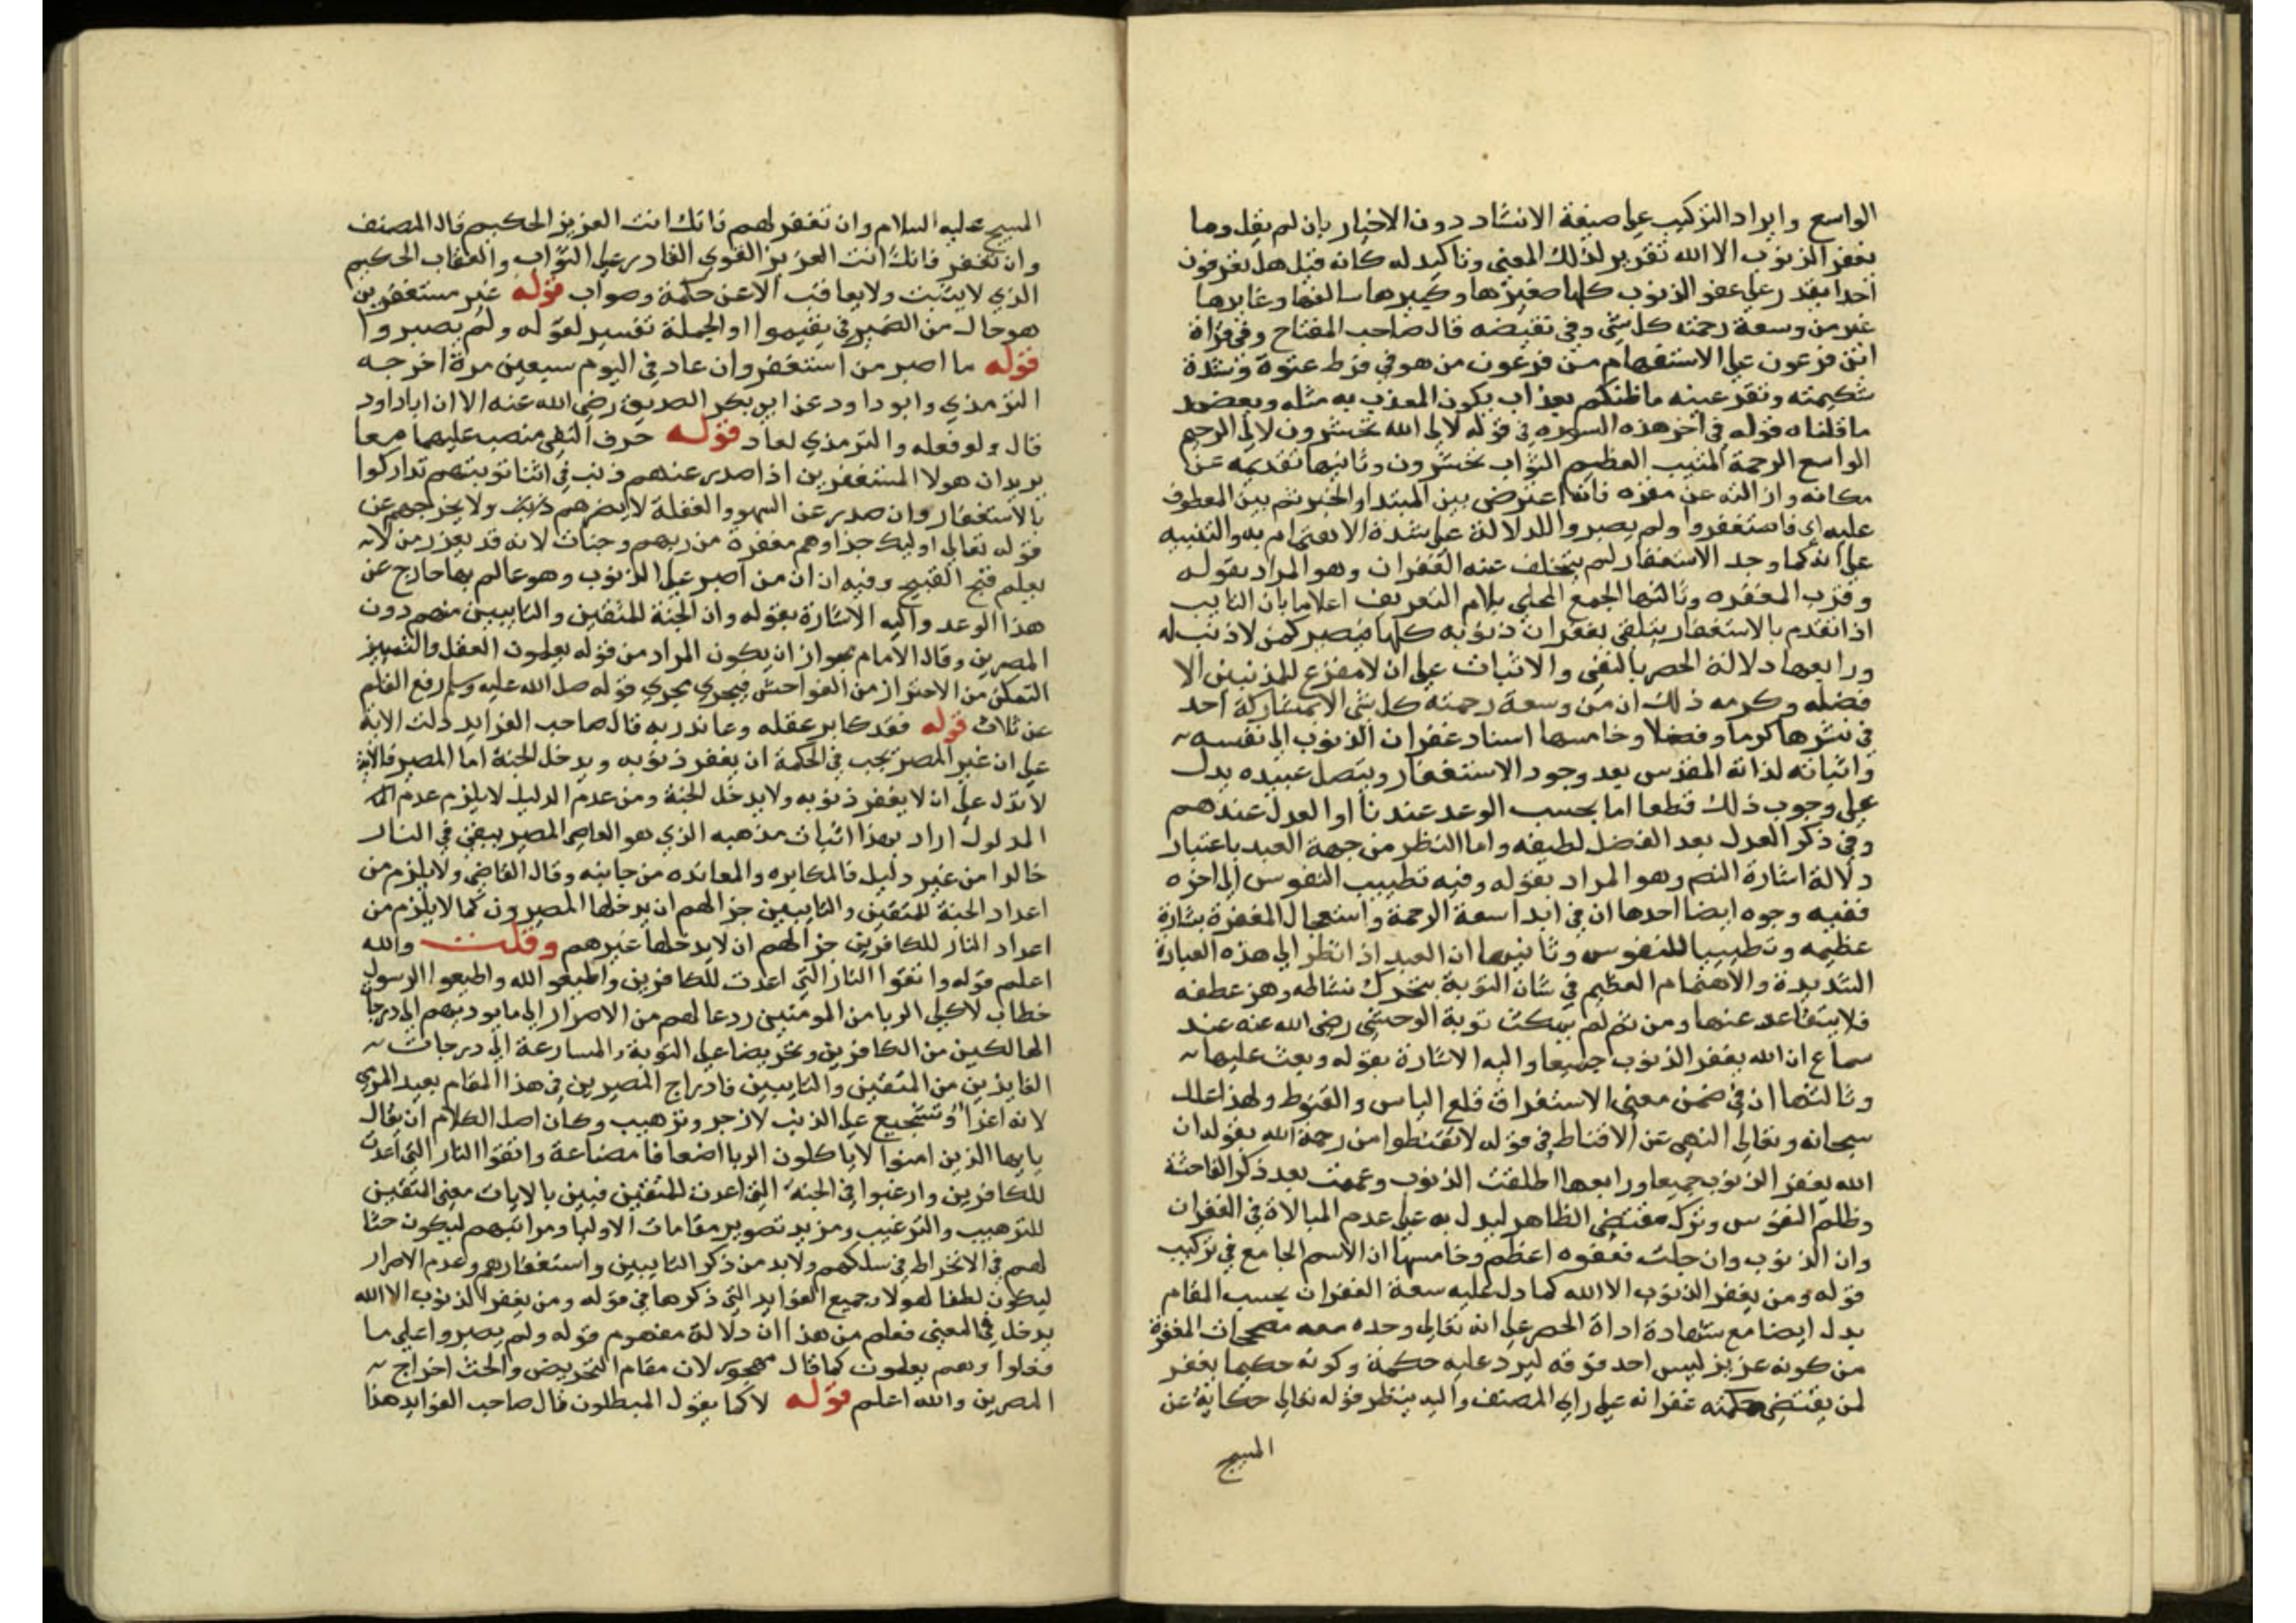 الواسع وايراد التركيب على صيغة الانشاد دون الاخبار بان لم يقل وما
يغفر الذنوب الا الله تقرير لذلك المعنى وتاكيد له كانه قيل هل تعرفون
احدا يقدر على عفو الذنوب كلها صغيرها وكبيرها سالفها وغابرها
غير من وسعة رحمته كل شي وفي نقيضه قال صاحب المفتاح وفي قراة
انن فرعون على الاستفهام من فرعون من هو في فرط عتوه وشدة
شكيمته وتفرعنه ما ظنكم بعذاب يكون المعذب به مثله ويعضد
ما قلناه قوله في اخر هذه السوره في قوله لالى الله تحشرون لالى الرحيم
الواسع الرحمة المثيب العظيم الثواب تحشرون وثانيها تقديمه عن
مكانه وازالته عن مقره فانه اعترض بين المبتدا والخبر ثم بين المعطوف
عليه اي فاستغفروا ولم يصروا للدلالة على شدة الاهتمام به والتنبيه
على انه كما وجد الاستغفار لم يتخلف عنه الغفران وهو المراد بقوله
وقرب المغفره وثالثها الجمع المحلى بلام التعريف اعلاما بان التايب
اذا تقدم بالاستغفار يتلقى بغفران ذنوبه كلها فيصير كمن لا ذنب له
ورابعها دلالة الحصر بالنفي والاثبات على ان لا مفزع للمذنبين الا
فضله وكرمه ذلك ان من وسعة رحمته كل شي لا يشاركه احد
في نشرها كرما وفضلا وخامسها اسناد غفران الذنوب الى نفسه
واثباته لذاته المقدس بعد وجود الاستغفار ويتصل عبيده يدل
على وجوب ذلك قطعا اما بحسب الوعد عندنا او العدل عندهم
وفي ذكر العدل بعد الفضل لطيفه واما النظر من جهة العبد باعتبار
دلالة اشارة النص وهو المراد بقوله وفيه تطييب النفوس الى اخره
ففيه وجوه ايضا احدها ان في ابدا سعة الرحمة واستعجال المغفرة بشارة
عظيمه وتطييبا للنفوس وثانيها ان العبد اذا نظر الى هذه العبارة
الشديدة والاهتمام العظيم في شان التوبة يتحرك نشاطه وهز عطفه
فلا يتقاعد عنها ومن ثم لم يمكث توبة الوحشي رضي الله عنه عند
سماع ان الله يغفر الذنوب جميعا واليه الاشارة بقوله ويعث عليها
وثالثها ان في ضمن معنى الاستغراق قلع الياس والقنوط ولهذا علل
سبحانه وتعالى النهي عن الاقناط في قوله لا تقنطوا من رحمة الله بقوله ان
الله يغفر الذنوب جميعا ورابعها اطلقت الذنوب وعممت بعد ذكر الفاحشة
وظلم النفوس وترك مقتضى الظاهر ليدل به على عدم المبالاة في الغفران
وان الذنوب وان جلت فعفوه اعظم وخامسها ان الاسم الجامع في تركيب
قوله ومن يغفر الذنوب الا الله كما دل عليه سعة الغفران بحسب المقام
يدل ايضا مع شهادة اداة الحصر على انه تعالى وحده معه مصححات المغفرة
من كونه عزيز ليس احد فوقه ليرد عليه حكمة وكونه حكيما يغفر
لمن يقتضي حكمته غفرانه على راى المصنف واليه ينظر قوله تعالى حكاية عن
المسيح
المسيح عليه السلام وان تغفر لهم فانك انت العزيز الحكيم قال المصنف
وان تغفر فانك انت العزيز القوى القادر على الثواب والعقاب الحكيم
الذي لا يثيب ولا يعاقب الا عن حكمة وصواب قوله غير مستغفرين
هو حال من الضمير في يقيموا او الجملة تفسير لقوله ولم يصروا
قوله ما اصر من استغفر وان عاد في اليوم سبعين مرة اخرجه
الترمذي وابو داود عن ابى بكر الصديق رضي الله عنه الا ان ابا داود
قال ولو فعله والترمذي لعاد قوله حرف النفي منصب عليهما معا
يريد ان هولا المستغفرين اذا صدر عنهم ذنب في اثنا توبتهم تداركوا
بالاستغفار وان صدر عن السهو والغفلة لا يضرهم ذلك ولا يخرجهم عن
قوله تعالى اوليك جزاوهم مغفرة من ربهم وجنات لانه قد يعذر من لا
يعلم قبح القبيح وفيه ان ان من اصر على الذنوب وهو عالم بها خارج عن
هذا الوعد واليه الاشارة بقوله وان الجنة للمتقين والتايبين منهم دون
المصرين وقال الامام يجوز ان يكون المراد من قوله يعلمون العقل والتمييز
التمكن من الاحتراز من الفواحش فيجري مجرى قوله صلى الله عليه وسلم رفع القلم
عن ثلاث قوله فقد كابر عقله وعاند ربه قال صاحب الفرايد دلت الاية
على ان غير المصر يجب في الحكمة ان يغفر ذنوبه ويدخل الجنة اما المصر فالاية
لا تدل على ان لا يغفر ذنوبه ولا يدخل الجنة ومن عدم الدليل لا يلزم عدم
المدلول اراد بهذا اثبات مذهبه الذي هو العاصي المصر يبقى في النار
خالدا من غير دليل فالمكابره والمعانده من جانبه وقال القاضي ولا يلزم من
اعداد الجنة للمتقين والتايبين جزالهم ان يدخلها المصرون كما لا يلزم من
اعداد النار للكافرين جزالهم ان لا يدخلها غيرهم وقلت والله
اعلم قوله واتقوا النار التي اعدت للكافرين واطيعو الله واطيعوا الرسول
خطاب لاكلي الربا من المومنين ردعا لهم من الاصرار الى ما يوديهم الى درجات
الهالكين من الكافرين وتحريضا على التوبة والمسارعة الى درجات
الفايزين من المتقين والتايبين فادراج المصرين في هذا المقام بعيد المرمى
لانه اغرا وتشجيع على الذنب لا زجر وترهيب وكان اصل الكلام ان يقال
يايها الذين امنوا لا ياكلون الربا اضعافا مضاعفة واتقوا النار التي اعدت
للكافرين وارغبوا في الجنة التي اعدت للمتقين فبين بالايات معنى المتقين
للترهيب والترغيب ومزيد تصوير مقامات الاوليا ومراتبهم ليكون حثا
لهم في الانخراط في سلكهم ولابد من ذكر التايبين واستغفارهم وعدم الاصرار
ليكون لطفا لهولا وجميع الفوايد التي ذكرها في قوله ومن يغفر الذنوب الا الله
يدخل في المعنى فعلم من هذا ان دلالة مفهوم قوله ولم يصروا على ما
فعلوا وهم يعلمون كما قال مهجور لان مقام التحريض والحث اخراج
المصرين والله اعلم قوله لا كما يقول المبطلون قال صاحب الفوايد هذا